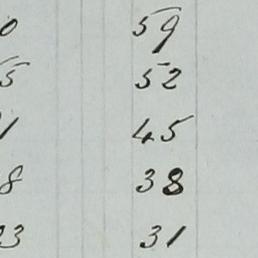 0 59
5 52
1 45
8 38
23 31